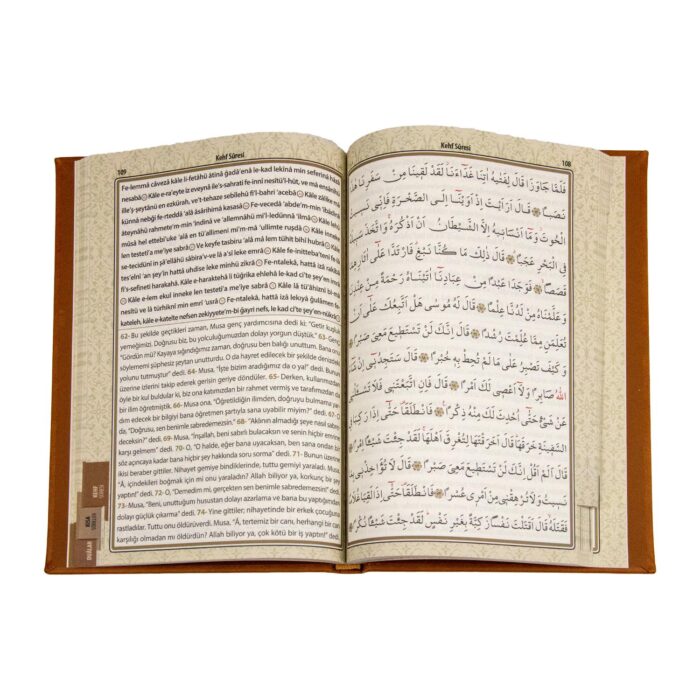 Kehf Sûresi
108
فَلَمَّا جَاوَزَا قَالَ لِفَتٰيهُ اٰتِنَا غَدَٓاءَنَاۘ لَقَدْ لَق۪ينَا مِنْ سَفَرِنَا هٰذَا
نَصَبًا ۞ قَالَ اَرَاَيْتَ اِذْ اَوَيْنَٓا اِلَى الصَّخْرَةِ فَاِنّ۪ي نَس۪يتُ
الْحُوتَۘ وَمَٓا اَنْسَان۪يهُ اِلَّا الشَّيْطَانُ اَنْ اَذْكُرَهُۚ وَاتَّخَذَ سَب۪يلَهُ
فِي الْبَحْرِ عَجَبًا ۞ قَالَ ذٰلِكَ مَا كُنَّا نَبْغِۗ فَارْتَدَّا عَلٰٓى اٰثَارِهِمَا
قَصَصًا ۞ فَوَجَدَا عَبْدًا مِنْ عِبَادِنَٓا اٰتَيْنَاهُ رَحْمَةً مِنْ عِنْدِنَا
وَعَلَّمْنَاهُ مِنْ لَدُنَّا عِلْمًا ۞ قَالَ لَهُ مُوسٰى هَلْ اَتَّبِعُكَ عَلٰٓى اَنْ
تُعَلِّمَنِ مِمَّا عُلِّمْتَ رُشْدًا ۞ قَالَ اِنَّكَ لَنْ تَسْتَط۪يعَ مَعِيَ صَبْرًا ۞
وَكَيْفَ تَصْبِرُ عَلٰى مَا لَمْ تُحِطْ بِه۪ خُبْرًا ۞ قَالَ سَتَجِدُن۪ٓي اِنْ شَٓاءَ
اللّٰهُ صَابِرًا وَلَٓا اَعْص۪ي لَكَ اَمْرًا ۞ قَالَ فَاِنِ اتَّبَعْتَن۪ي فَلَا تَسْـَٔلْن۪ي
عَنْ شَيْءٍ حَتّٰٓى اُحْدِثَ لَكَ مِنْهُ ذِكْرًا ۞ فَانْطَلَقَا۠ حَتّٰٓى اِذَا رَكِبَا فِي
السَّف۪ينَةِ خَرَقَهَاۜ قَالَ اَخَرَقْتَهَا لِتُغْرِقَ اَهْلَهَاۚ لَقَدْ جِئْتَ شَيْـًٔا اِمْرًا ۞
قَالَ اَلَمْ اَقُلْ اِنَّكَ لَنْ تَسْتَط۪يعَ مَعِيَ صَبْرًا ۞ قَالَ لَا تُؤَاخِذْن۪ي بِمَا
نَس۪يتُ وَلَا تُرْهِقْن۪ي مِنْ اَمْر۪ي عُسْرًا ۞ فَانْطَلَقَا۠ حَتّٰٓى اِذَا لَقِيَا غُلَامًا
فَقَتَلَهُۙ قَالَ اَقَتَلْتَ نَفْسًا زَكِيَّةً بِغَيْرِ نَفْسٍۜ لَقَدْ جِئْتَ شَيْـًٔا نُكْرًا
109
Kehf Sûresi
Fe-lemmâ câvezâ kâle li-fetâhü âtinâ ğadâ'enâ le-kad lekînâ min seferinâ hâzâ
nesabâ۞ Kâle e-ra'eyte iz eveynâ ile's-sahrati fe-innî nesîtü'l-hût, ve mâ ensânîhü
ille'ş-şeytânü en ezkürah, ve't-tehaze sebîlehû fi'l-bahri 'acebâ۞ Kâle zâlike mâ
künnâ nebği fe-rteddâ 'alâ âsârihimâ kasasâ۞ Fe-vecedâ 'abde'm-min 'ibâdinâ
âteynâhü rahmete'm-min 'indinâ ve 'allemnâhü mi'l-ledünnâ 'ilmâ۞ Kâle lehû
mûsâ hel ettebi'uke 'alâ en tü'allimeni mi'm-mâ 'ullimte ruşdâ۞ Kâle inneke
len testetî'a me'iye sabrâ۞ Ve keyfe tasbiru 'alâ mâ lem tühit bihî hubrâ۞ Kâle
se-tecidünî in şâ'ellâhü sâbira'v-ve lâ a'sî leke emrâ۞ Kâle fe-initteba'tenî fe-lâ
tes'elnî 'an şey'in hattâ uhdise leke minhü zikrâ۞ Fe-ntalekâ, hattâ izâ rakibâ
fi's-sefîneti harakahâ. Kâle e-harektehâ li tuğrika ehlehâ le-kad ci'te şey'en imrâ۞
Kâle e-lem ekul inneke len testetî'a me'iye sabrâ۞ Kâle lâ tü'âhiznî bi-mâ
nesîtü ve lâ türhiknî min emrî 'usrâ۞ Fe-ntalekâ, hattâ izâ lekıyâ ğulâmen fe-
katelehü, kâle e-katelte nefsen zekiyyete'm-bi ğayri nefs, le-kad ci'te şey'en-nükrâ۞
62- Bu şekilde geçtikleri zaman, Musa genç yardımcısına dedi ki: "Getir kuşluk
yemeğimizi. Doğrusu biz, bu yolculuğumuzdan dolayı yorgun düştük." 63- Genç:
"Gördün mü? Kayaya sığındığımız zaman, doğrusu ben balığı unuttum. Bana onu
söylememi şüphesiz şeytan unutturdu. O da hayret edilecek bir şekilde denizdeki
yolunu tutmuştur" dedi. 64- Musa, "İşte bizim aradığımız da o ya!" dedi. Bunun
üzerine izlerini takip ederek gerisin geriye döndüler. 65- Derken, kullarımızdan
öyle bir kul buldular ki, biz ona katımızdan bir rahmet vermiş ve tarafımızdan özel
bir ilim öğretmiştik. 66- Musa ona, "Öğretildiğin ilimden, doğruyu bulmama yar-
dım edecek bir bilgiyi bana öğretmen şartıyla sana uyabilir miyim?" dedi. 67- O
da, "Doğrusu, sen benimle sabredemezsin" dedi. 68- "Aklının almadığı şeye nasıl sabre-
deceksin?" dedi. 69- Musa, "İnşallah, beni sabırlı bulacaksın ve senin hiçbir emrine
karşı gelmem" dedi. 70- O, "O halde, eğer bana uyacaksan, ben sana ondan bir
söz açıncaya kadar bana hiçbir şey hakkında soru sorma" dedi. 71- Bunun üzerine
ikisi beraber gittiler. Nihayet gemiye bindiklerinde, tuttu gemiyi yaraladı. Musa:
"Â, içindekileri boğmak için mi onu yaraladın? Allah biliyor ya, korkunç bir şey
yaptın!" dedi. 72- O, "Demedim mi, gerçekten sen benimle sabredemezsin!" dedi.
73- Musa, "Beni, unuttuğum husustan dolayı azarlama ve bana bu yaptığımdan
dolayı güçlük çıkarma" dedi. 74- Yine gittiler; nihayetinde bir erkek çocuğuna
rastladılar. Tuttu onu öldürüverdi. Musa, "Â, tertemiz bir canı, herhangi bir can
karşılığı olmadan mı öldürdün? Allah biliyor ya, çok kötü bir iş yaptın!" dedi.
KEHF
SÛRESİ
KISA
SÛRELER
DUÂLAR